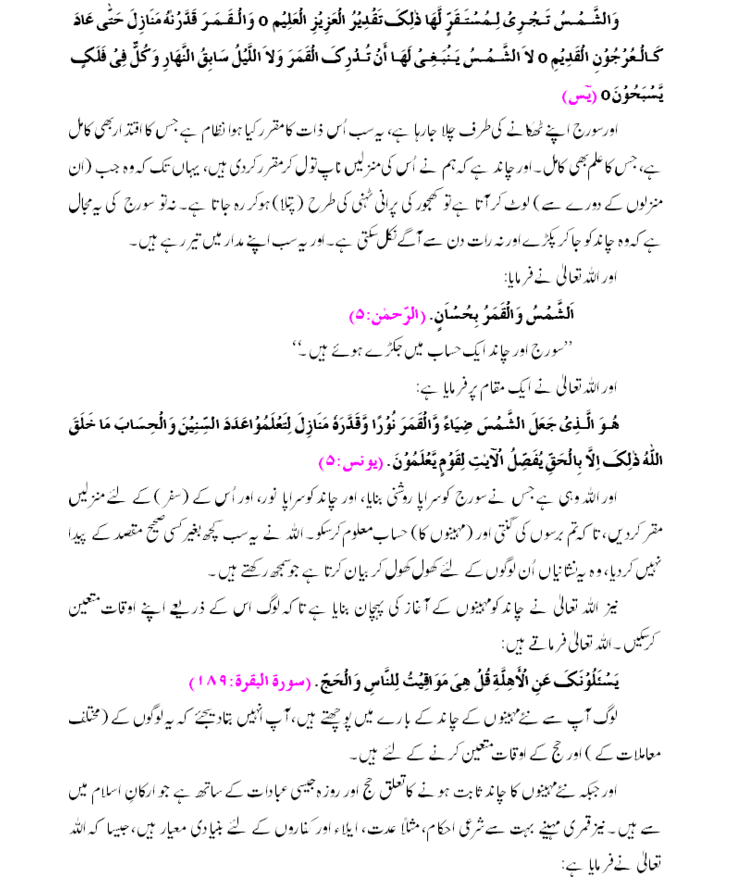 وَالشَّمْسُ تَجْرِىْ لِمُسْتَقَرٍّ لَّهَا ذٰلِکَ تَقْدِيْرُ الْعَزِيْزِ الْعَلِيْمِ o وَالْقَمَرَ قَدَّرْنٰهُ مَنَازِلَ حَتّٰى عَادَ
کَالْعُرْجُوْنِ الْقَدِيْمِ o لاَ الشَّمْسُ يَنْبَغِىْ لَهَا أَنْ تُدْرِکَ الْقَمَرَ وَلاَ اللَّيْلُ سَابِقُ النَّهَارِ وَکُلٌّ فِىْ فَلَکٍ
يَّسْبَحُوْنَ o (يٰسٓ)
اور سورج اپنے ٹھکانے کی طرف چلا جارہا ہے، یہ سب اُس ذات کا مقرر کیا ہوا نظام ہے جس کا اقتدار بھی کامل
ہے، جس کا علم بھی کامل۔ اور چاند ہے کہ ہم نے اُس کی منزلیں ناپ تول کر مقرر کردی ہیں، یہاں تک کہ وہ جب (ان
منزلوں کے دورے سے) لوٹ کر آتا ہے تو کھجور کی پرانی ٹہنی کی طرح (پتلا) ہوکر رہ جاتا ہے۔ نہ تو سورج کی یہ مجال
ہے کہ وہ چاند کو جا کر پکڑے اور نہ رات دن سے آگے نکل سکتی ہے۔ اور یہ سب اپنے مدار میں تیر رہے ہیں۔
اور اللہ تعالیٰ نے فرمایا:
اَلشَّمْسُ وَالْقَمَرُ بِحُسْبَانٍ. (الرّحمٰن:۵)
’’سورج اور چاند ایک حساب میں جکڑے ہوئے ہیں۔‘‘
اور اللہ تعالیٰ نے ایک مقام پر فرمایا ہے:
هُوَ الَّذِىْ جَعَلَ الشَّمْسَ ضِيَاءً وَّالْقَمَرَ نُوْرًا وَّقَدَّرَهٗ مَنَازِلَ لِتَعْلَمُوْا عَدَدَ السِّنِيْنَ وَالْحِسَابَ مَا خَلَقَ
اللّٰهُ ذٰلِکَ اِلَّا بِالْحَقِّ يُفَصِّلُ الْاٰيٰتِ لِقَوْمٍ يَّعْلَمُوْنَ. (يونس:۵)
اور اللہ وہی ہے جس نے سورج کو سراپا روشنی بنایا، اور چاند کو سراپا نور، اور اُس کے (سفر) کے لئے منزلیں
مقرر کردیں، تاکہ تم برسوں کی گنتی اور (مہینوں کا) حساب معلوم کرسکو۔ اللہ نے یہ سب کچھ بغیر کسی صحیح مقصد کے پیدا
نہیں کردیا، وہ یہ نشانیاں اُن لوگوں کے لئے کھول کھول کر بیان کرتا ہے جو سمجھ رکھتے ہیں۔
نیز اللہ تعالیٰ نے چاند کو مہینوں کے آغاز کی پہچان بنایا ہے تاکہ لوگ اس کے ذریعے اپنے اوقات متعین
کرسکیں۔ اللہ تعالیٰ فرماتے ہیں:
يَسْئَلُوْنَکَ عَنِ الْأَهِلَّةِ قُلْ هِىَ مَوَاقِيْتُ لِلنَّاسِ وَالْحَجّ. (سورة البقرة:۱۸۹)
لوگ آپ سے نئے مہینوں کے چاند کے بارے میں پوچھتے ہیں، آپ اُنہیں بتادیجئے کہ یہ لوگوں کے (مختلف
معاملات کے) اور حج کے اوقات متعین کرنے کے لئے ہیں۔
اور جبکہ نئے مہینوں کا چاند ثابت ہونے کا تعلق حج اور روزہ جیسی عبادات کے ساتھ ہے جو ارکانِ اسلام میں
سے ہیں۔ نیز قمری مہینے بہت سے شرعی احکام، مثلاً عدت، ایلاء اور کفاروں کے لئے بنیادی معیار ہیں، جیسا کہ اللہ
تعالیٰ نے فرمایا ہے: